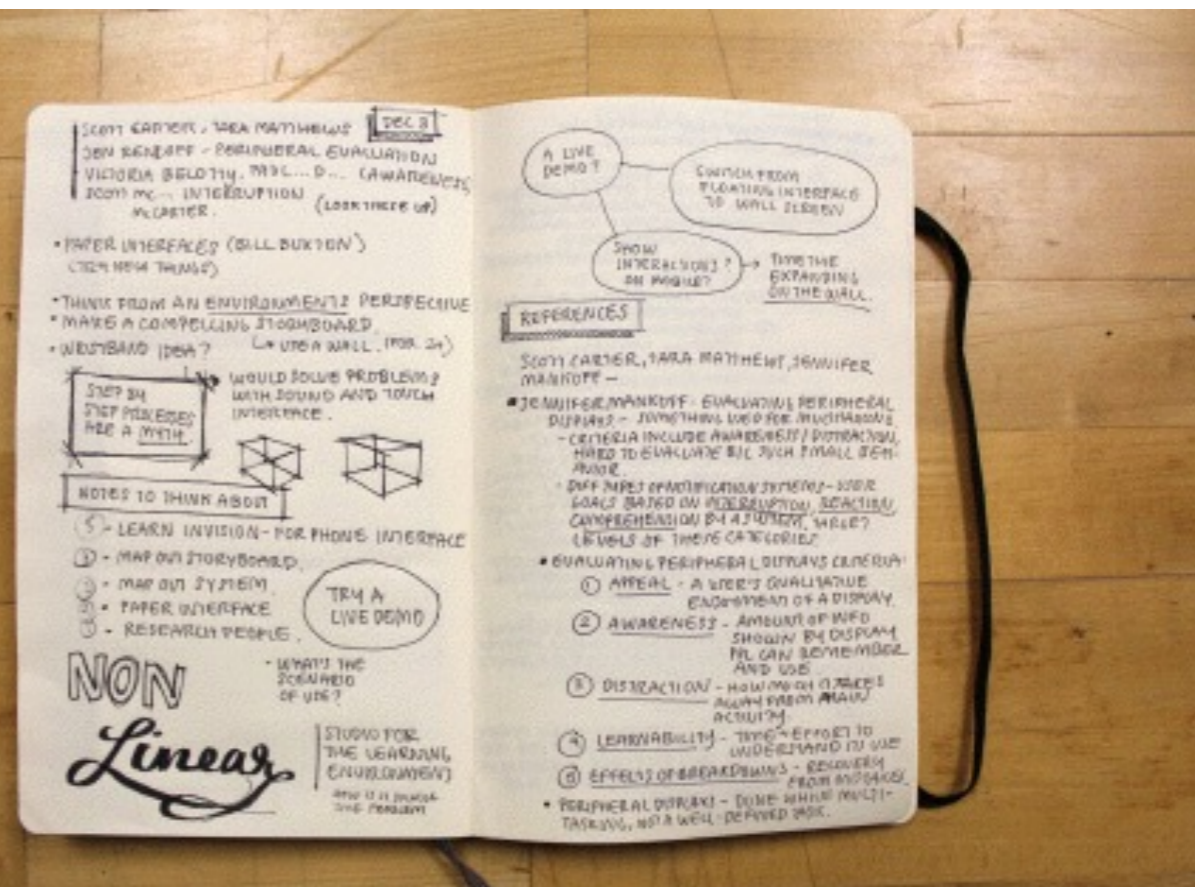 SCOTT CARTER, TARA MATTHEWS DEC 3
JEN - PERIPHERAL EVALUATION
VICTORIA BELOTTY, PAUL...D... (AWARENESS)
SCOTT MC... INTERRUPTION
MCCARTER. (LOOK THESE UP)
• PAPER INTERFACES (BILL BUXTON)
(TRY NEW THINGS)
• THINK FROM AN ENVIRONMENTS PERSPECTIVE
• MAKE A COMPELLING STORYBOARD.
• WRISTBAND IDEA? USE A WALL.
WOULD SOLVE PROBLEMS
WITH SOUND AND TOUCH
INTERFACE.
STEP BY
STEP PROCESSES
ARE A MYTH
NOTES TO THINK ABOUT
⑤ - LEARN INVISION - FOR PHONE INTERFACE
- MAP OUT STORYBOARD.
- MAP OUT SYSTEM.
- PAPER INTERFACE
- RESEARCH PEOPLE.
TRY A
LIVE DEMO
NON
Linear
- WHAT'S THE
SCENARIO
OF USE?
STUDIO FOR
THE LEARNING
ENVIRONMENT
THE PROBLEM
A LIVE
DEMO?
SWITCH FROM
FLOATING INTERFACE
TO WALL SCREEN
SHOW
INTERACTIONS?
ON MOBILE?
→ TIME THE
EXPANDING
ON THE WALL.
REFERENCES
SCOTT CARTER, TARA MATTHEWS, JENNIFER
MANKOFF -
• JENNIFER MANKOFF - EVALUATING PERIPHERAL
DISPLAYS - SOMETHING USED FOR MULTITASKING
- CRITERIA INCLUDE AWARENESS / DISTRACTION,
HARD TO EVALUATE B/C SUCH SMALL BEH-
AVIOR.
- DIFF TYPES OF NOTIFICATION SYSTEMS - USER
GOALS BASED ON INTERRUPTION, REACTION,
COMPREHENSION BY A SYSTEM. TARGET
LEVELS OF THESE CATEGORIES
• EVALUATING PERIPHERAL DISPLAYS CRITERIA:
① APPEAL - A USER'S QUALITATIVE
ENJOYMENT OF A DISPLAY.
② AWARENESS - AMOUNT OF INFO
SHOWN BY DISPLAY
PPL CAN REMEMBER
AND USE
③ DISTRACTION - HOW MUCH IT TAKES
AWAY FROM MAIN
ACTIVITY.
④ LEARNABILITY - TIME + EFFORT TO
UNDERSTAND ITS USE
⑤ EFFECTS OF BREAKDOWNS - RECOVERY
FROM MISTAKES.
• PERIPHERAL DISPLAYS - DONE WHILE MULTI-
TASKING, NOT A WELL-DEFINED TASK.